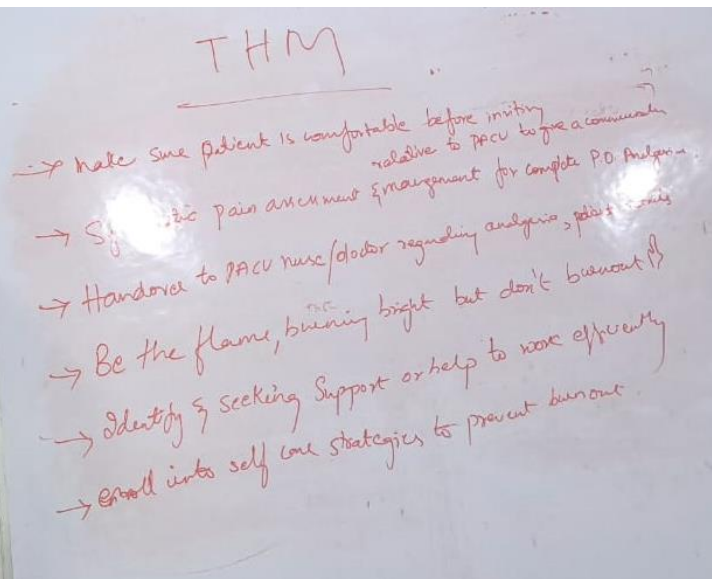 THM
→ Make sure patient is comfortable before inviting
relative to PACU to give a
→ pain assessment & management for complete P.O. Analgesia.
→ Handover to PACU nurse/doctor regarding analgesia, patient
→ Be the flame, burning bright but don't burnout
→ Identify & seeking Support or help to work efficiently
→ enroll into self care strategies to prevent burnout.